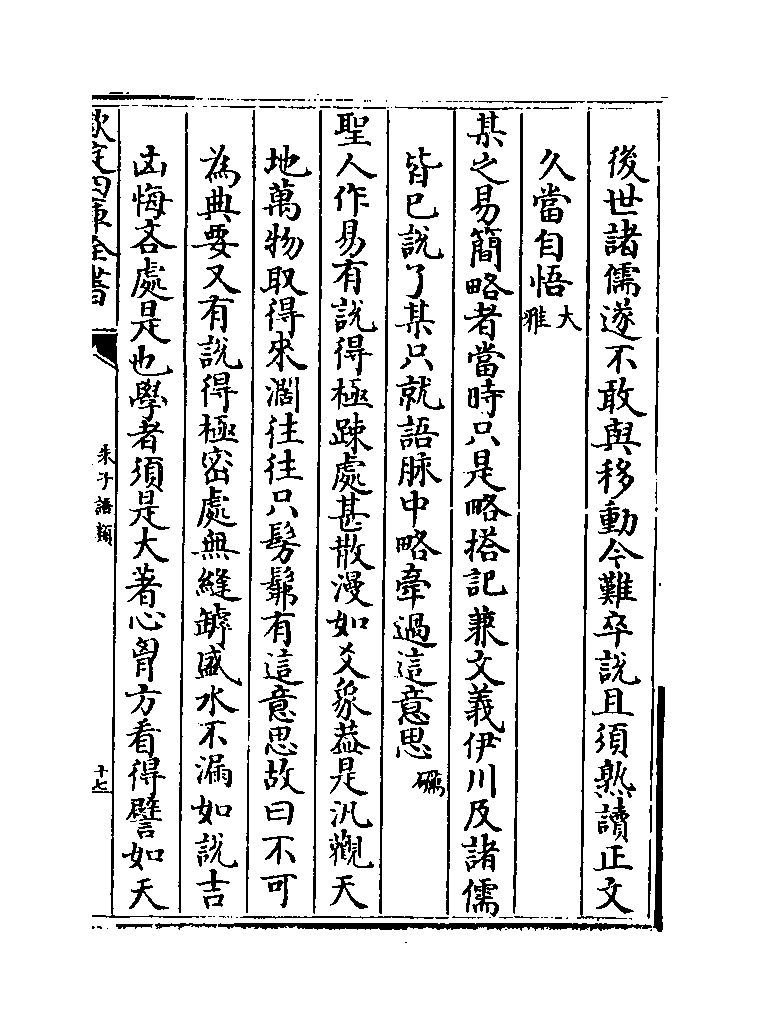 後世諸儒遂不敢與移動今難卒說且須熟讀正文
久當自悟大雅
某之易簡略者當時只是略搭記兼文義伊川及諸儒
皆已說了某只就語脉中略牽過這意思礪
聖人作易有說得極踈處甚散漫如爻象葢是汎觀天
地萬物取得來濶往往只髣髴有這意思故曰不可
為典要又有說得極密處無縫罅盛水不漏如說吉
凶悔吝處是也學者須是大著心胷方看得譬如天
欽定四庫全書
朱子語類
十七